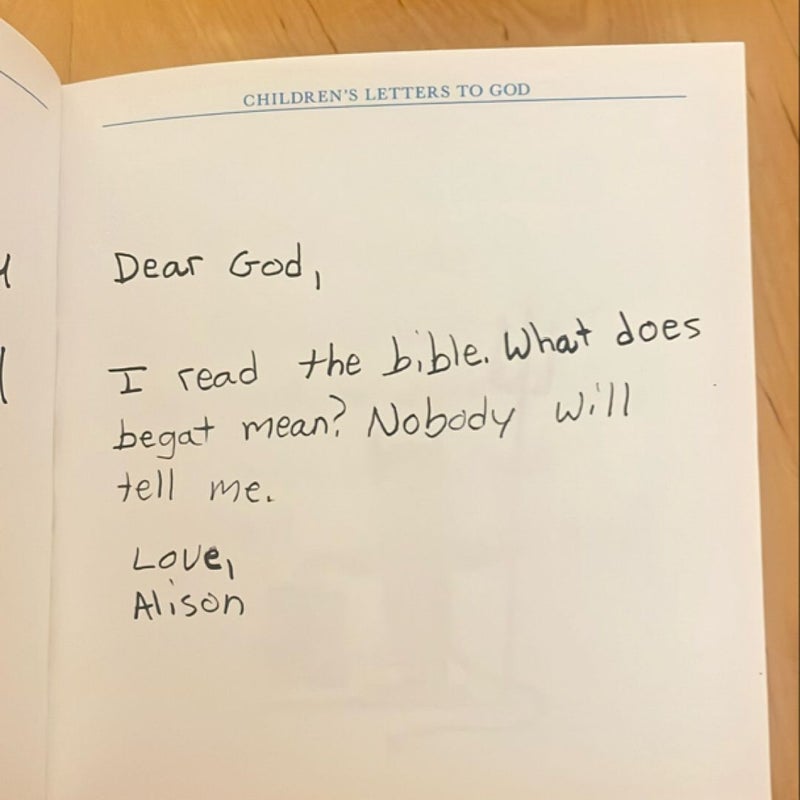 CHILDREN'S LETTERS TO GOD
Dear God,
I read the bible. What does
begat mean? Nobody will
tell me.
Love,
Alison